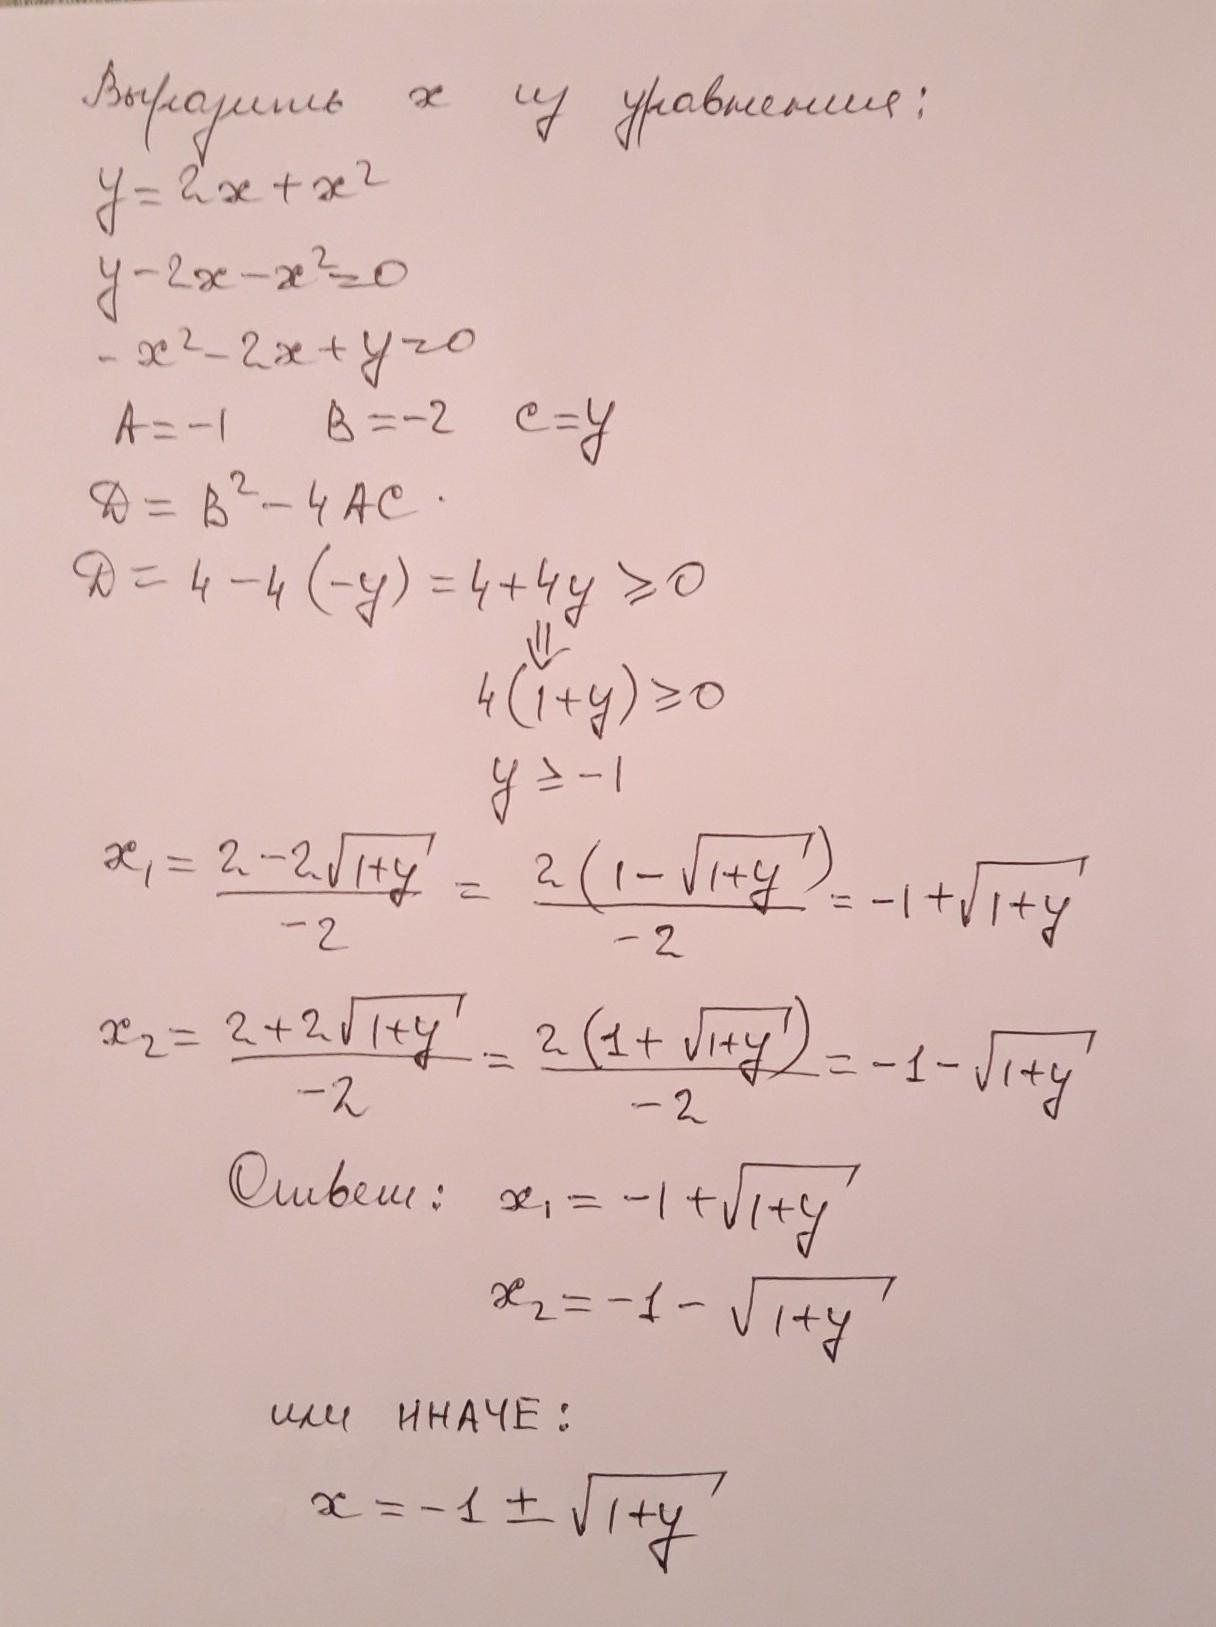 Выразить x из уравнения:
y = 2x + x²
y - 2x - x² = 0
- x² - 2x + y = 0
A = -1 B = -2 C = y
D = B² - 4AC
D = 4 - 4(-y) = 4 + 4y ≥ 0
⇓
4(1+y) ≥ 0
y ≥ -1
x₁ = (2 - 2√(1+y))/(-2) = (2(1 - √(1+y)))/(-2) = -1 + √(1+y)
x₂ = (2 + 2√(1+y))/(-2) = (2(1 + √(1+y)))/(-2) = -1 - √(1+y)
Ответ: x₁ = -1 + √(1+y)
x₂ = -1 - √(1+y)
или ИНАЧЕ:
x = -1 ± √(1+y)